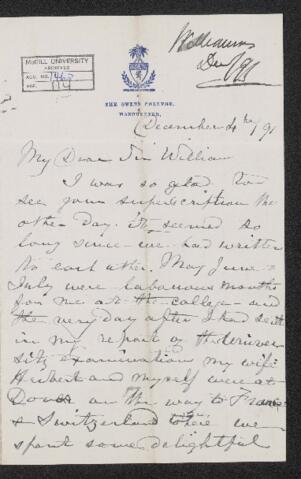 Williamson
Dec/91
McGILL UNIVERSITY
ARCHIVES
ACC. NO.
REF.
THE OWENS COLLEGE,
MANCHESTER.
December 4th/91
My Dear Sir William
I was so glad to
see your superscription the
other day. It seemed so
long since we had written
to each other. May June &
July were laborious months
for me at the college – and
the very day after I had sent
in my report of the Univer
sity examination my wife
Herbert and myself were at
Dover on the way to France
& Switzerland where we
spent some delightful